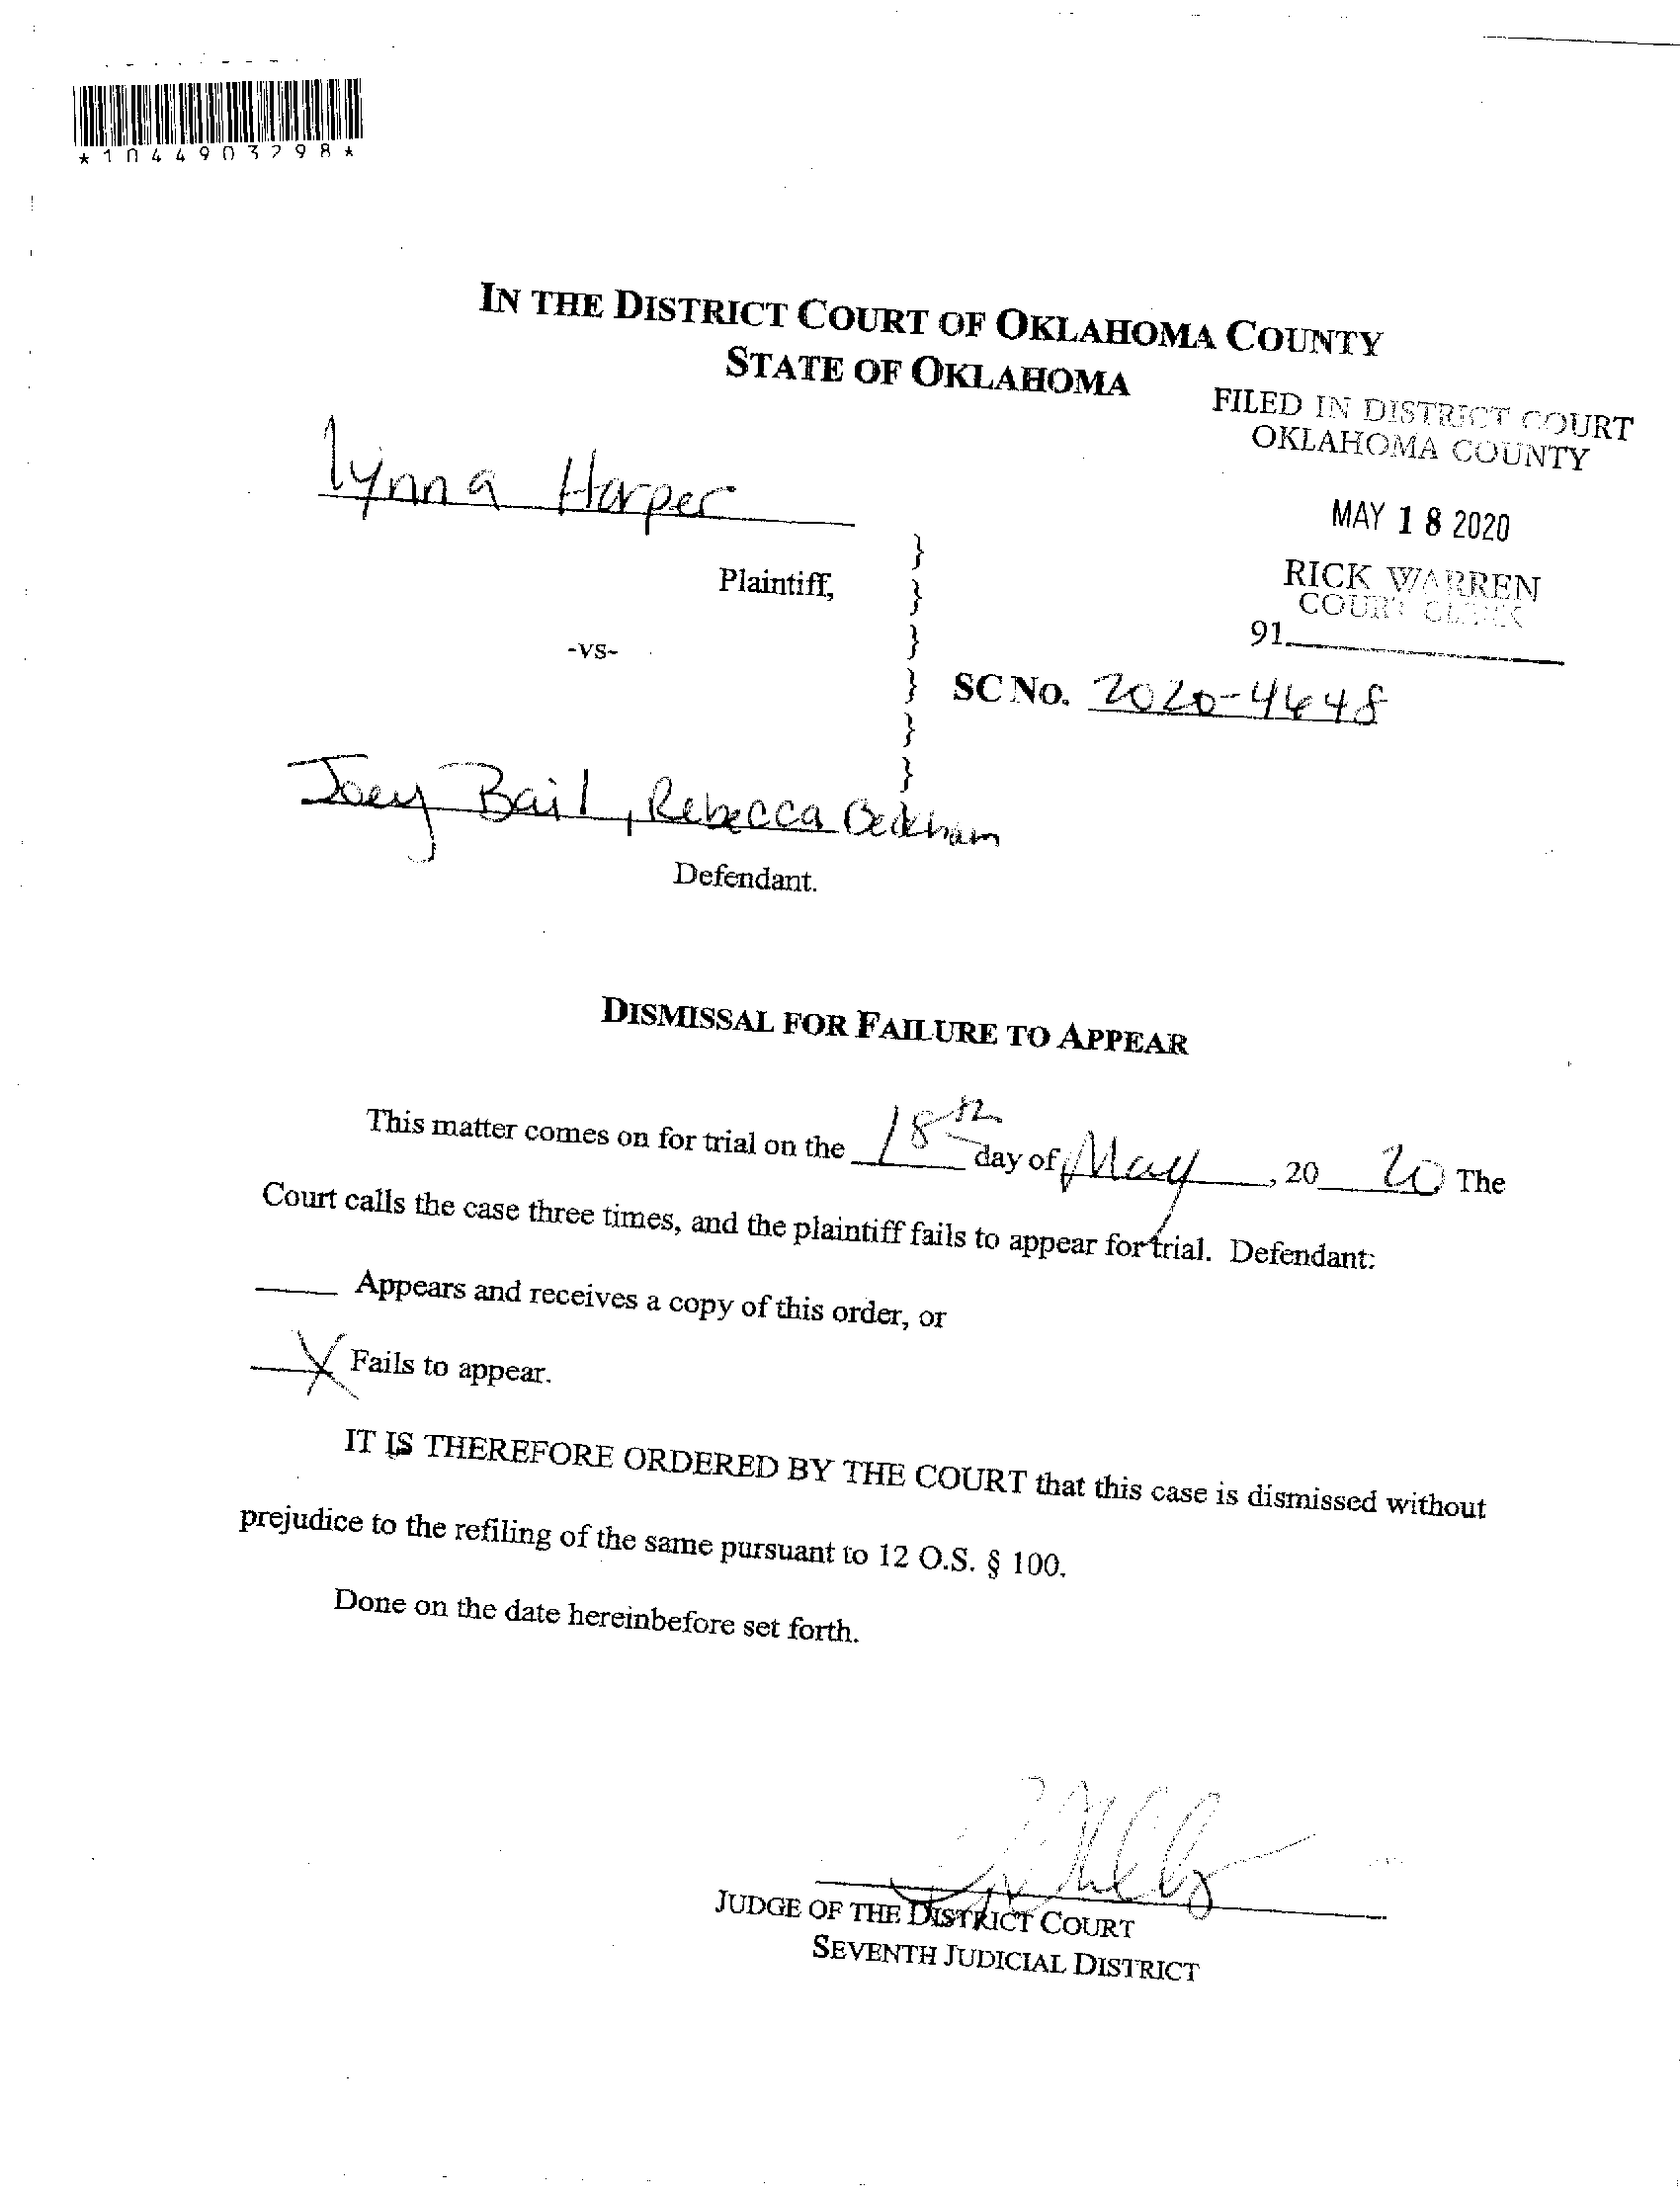 *1044903298*
IN THE DISTRICT COURT OF OKLAHOMA COUNTY
STATE OF OKLAHOMA
FILED IN DISTRICT COURT
OKLAHOMA COUNTY
MAY 18 2020
RICK WARREN
COURT CLERK
91
Lynna Harper
Plaintiff,
-vs-
SC No. 2020-4648
Joey Bail, Rebecca Beckham
Defendant.
DISMISSAL FOR FAILURE TO APPEAR
This matter comes on for trial on the 18th day of May, 20 20 The
Court calls the case three times, and the plaintiff fails to appear for trial. Defendant:
Appears and receives a copy of this order, or
X Fails to appear.
IT IS THEREFORE ORDERED BY THE COURT that this case is dismissed without
prejudice to the refiling of the same pursuant to 12 O.S. § 100.
Done on the date hereinbefore set forth.
JUDGE OF THE DISTRICT COURT
SEVENTH JUDICIAL DISTRICT